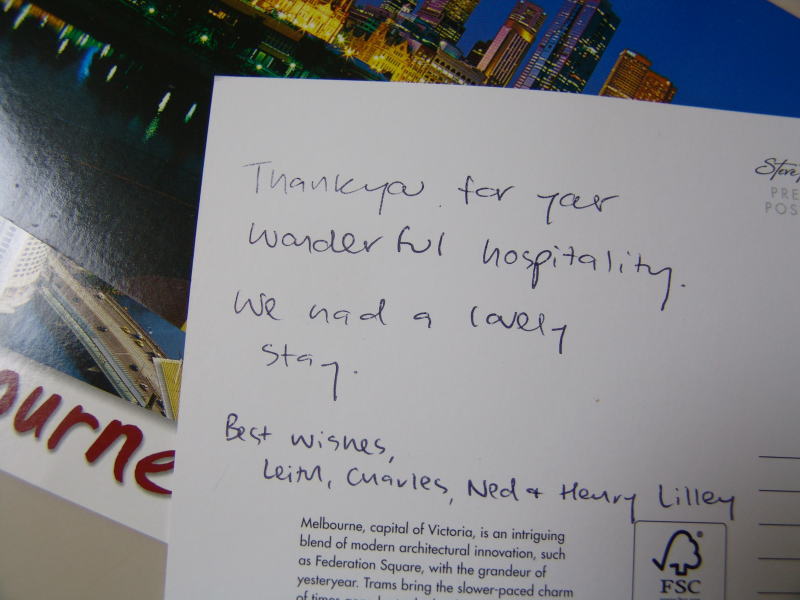 Thankyou for your
wonderful hospitality.
We had a lovely
stay.
Best wishes,
Leith, Charles, Ned + Henry Lilley
Melbourne, capital of Victoria, is an intriguing
blend of modern architectural innovation, such
as Federation Square, with the grandeur of
yesteryear. Trams bring the slower-paced charm
FSC
PRE
POS
ourne